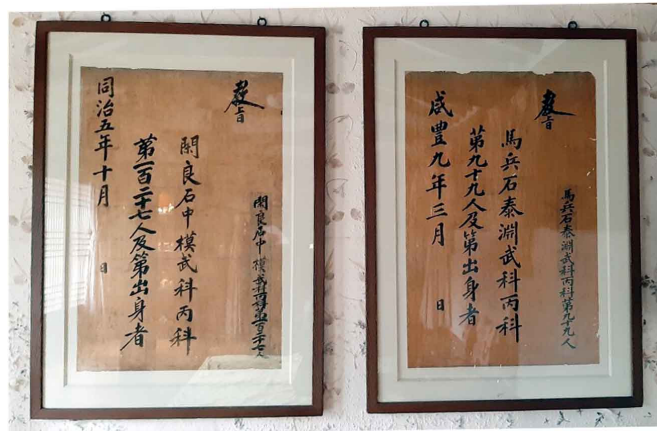 教旨
馬兵石泰淵武科丙科第九十九人
馬兵石泰淵武科丙科
第九十九人及第出身者
咸豊九年三月 日
教旨
閑良石中模武科丙科第一百二十七人
閑良石中模武科丙科
第一百二十七人及第出身者
同治五年十月 日